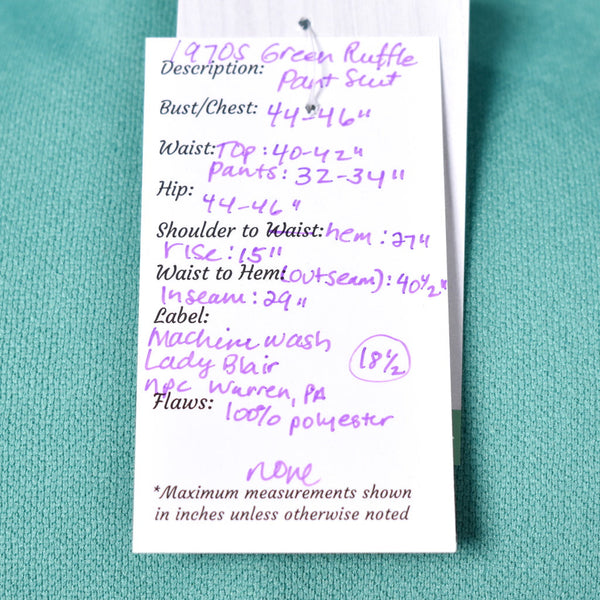 1970s Green Ruffle
Description: Pant Suit
Bust/Chest: 44-46"
Waist: Top: 40-42"
Pants: 32-34"
Hip:
44-46"
Shoulder to Waist: hem: 27"
rise: 15"
Waist to Hem: (outseam): 40 1/2"
Inseam: 29"
Label:
Machine wash
Lady Blair 18 1/2
npc Warren, PA
Flaws: 100% polyester
none
*Maximum measurements shown
in inches unless otherwise noted